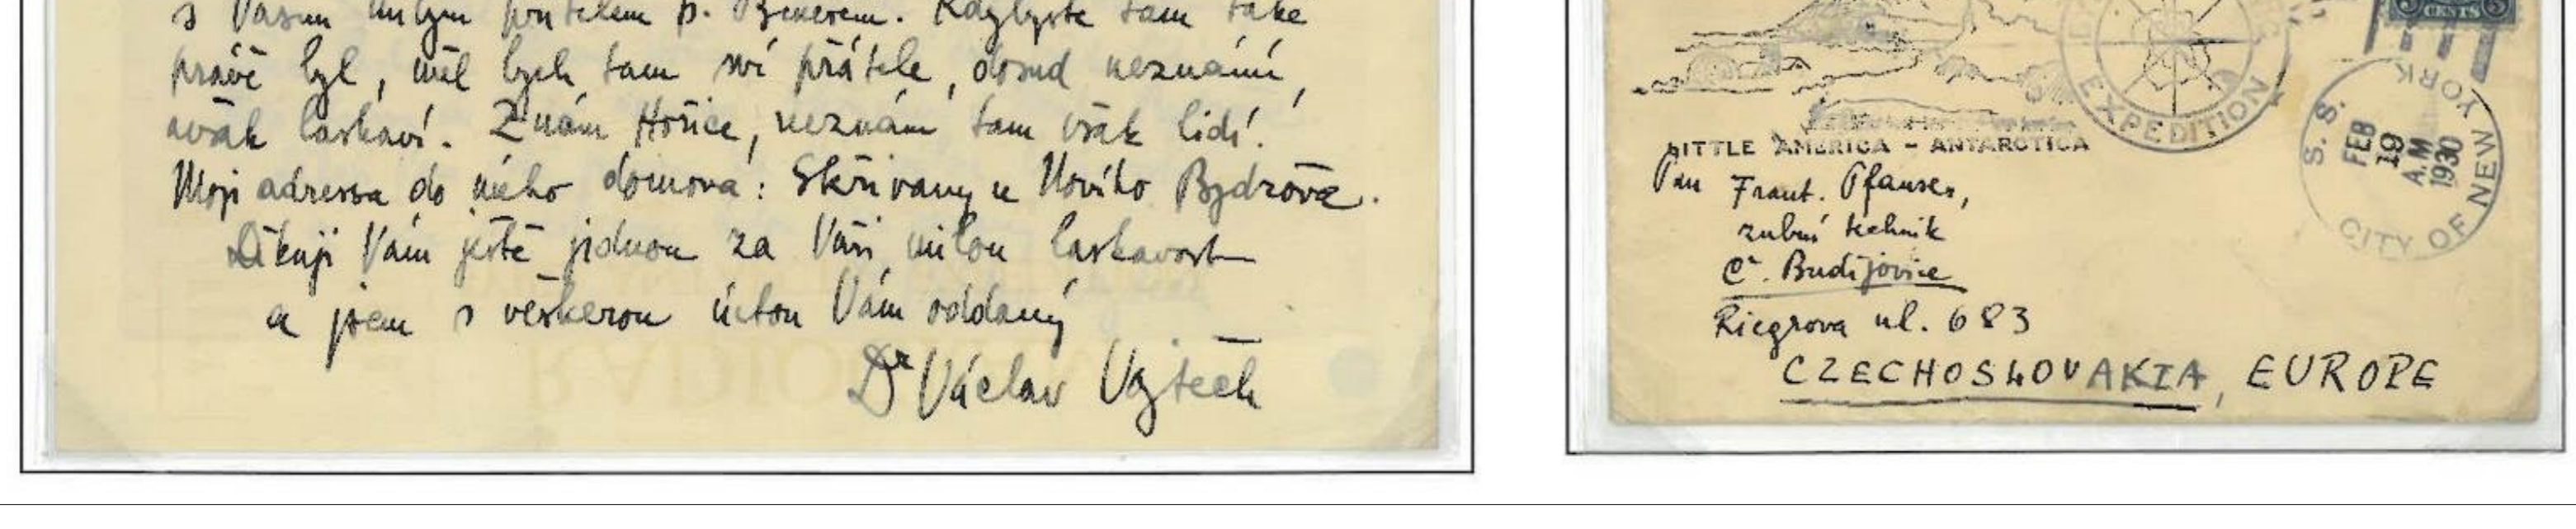 s Vaším milým přítelem p. Benerem. Kdybyste tam také
právě byl, měl bych tam své přátele, dosud neznámé,
avšak laskavé. Znám Hořice, neznám tam však lidí.
Moje adressa do mého domova: Skřivany u Nového Bydžova.
Děkuji Vám ještě jednou za Vaši milou laskavost
a jsem s veškerou úctou Vám oddaný
Dr Václav Vojtěch
EXPEDITION
CENTS
LITTLE AMERICA - ANTARCTICA
S. S. CITY OF NEW YORK
FEB
19
A.M
1930
Pan Frant. Pfauser,
zubní technik
Č. Budějovice
Riegrova ul. 683
CZECHOSLOVAKIA, EUROPE